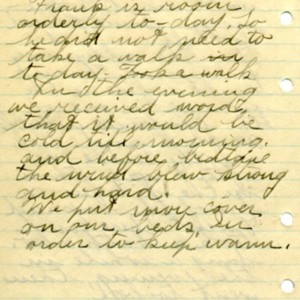 Frank is room
orderly to-day. So
he did not need to
take a walk in
to day. Took a walk
In the evening
we received word
that it would be
cold till morning.
and before bedtime
the wind blew strong
and hard.
We put more cover
on our beds. in
order to keep warm.